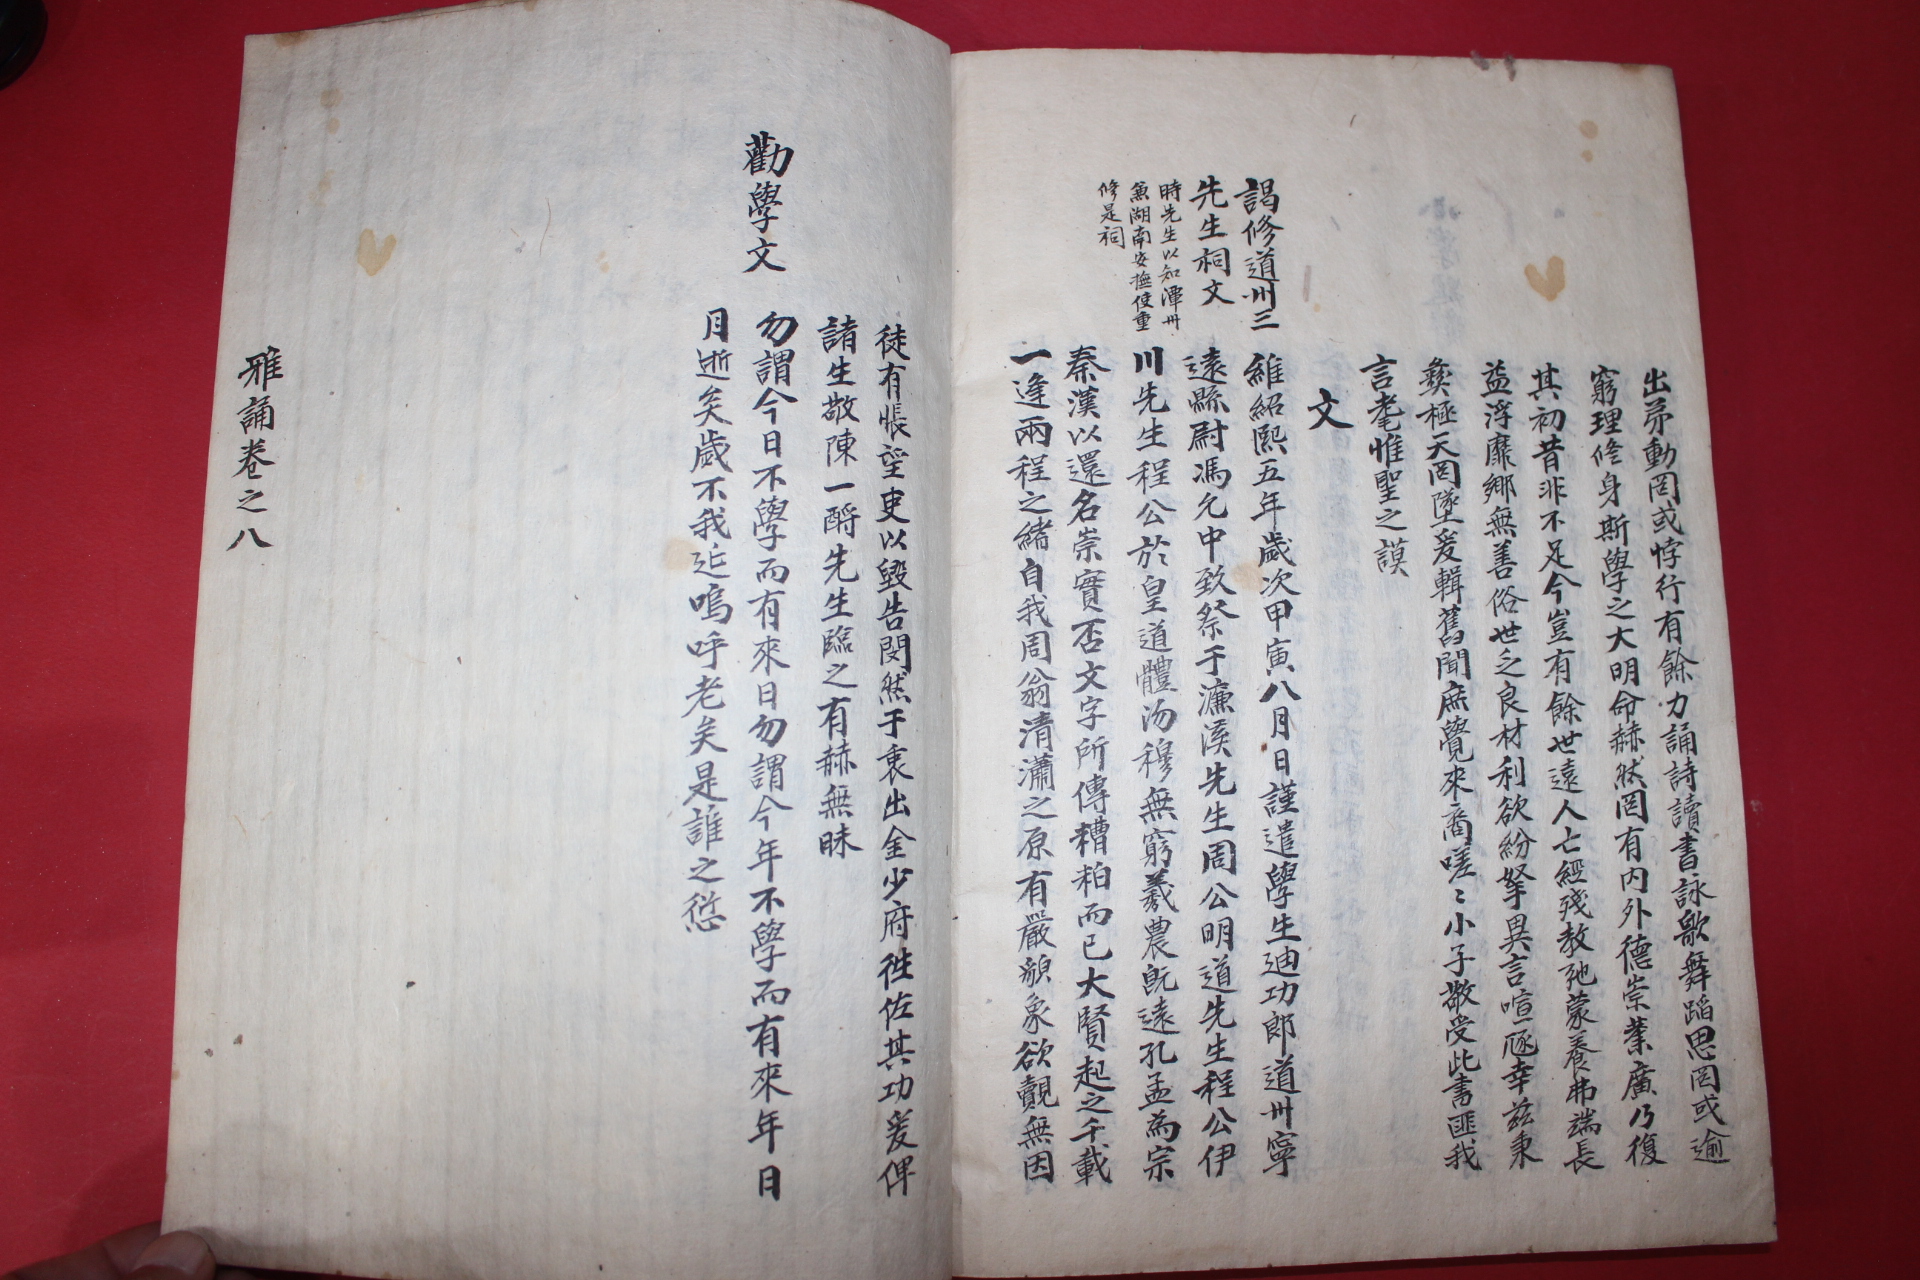 出弟動罔或悖行有餘力誦詩讀書詠歌舞蹈思罔或逾
窮理修身斯學之大明命赫然罔有內外德崇業廣乃復
其初昔非不足今豈有餘世遠人亡經殘教弛蒙養弗端長
益浮靡鄉無善俗世乏良材利欲紛拏異言喧豗幸玆秉
彜極天罔墜爰輯舊聞庶覺來裔嗟〻小子敬受此書匪我
言耄惟聖之謨
文
謁修道州三
先生祠文
時先生以知潭州
兼湖南安撫使重
修是祠
維紹熙五年歲次甲寅八月日謹遣學生迪功郎道州寧
遠縣尉馮允中致祭于濂溪先生周公明道先生程公伊
川先生程公於皇道體沕穆無窮羲農旣遠孔孟為宗
秦漢以還名崇實否文字所傳糟粕而已大賢起之千載
一逢兩程之緒自我周翁清瀟之原有嚴貌象欲覿無因
徒有悵望吏以毀告閔然于衷出金少府徃佐其功爰俾
諸生敬陳一酹先生臨之有赫無昧
勸學文
勿謂今日不學而有來日勿謂今年不學而有來年日
月逝矣歲不我延嗚呼老矣是誰之愆
雅誦卷之八